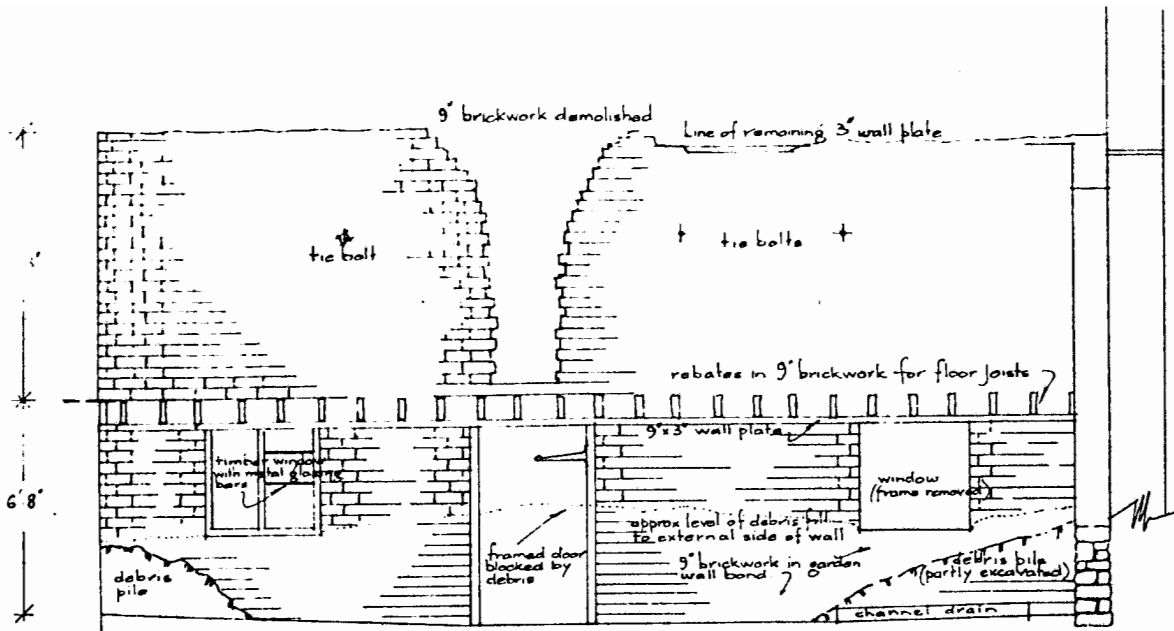 9" brickwork demolished
Line of remaining 3" wall plate
tie bolt
tie bolts
rebates in 9" brickwork for floor joists
9"x3" wall plate
timber window
with metal glazing
bars
window
(frame removed)
6'8"
approx level of debris fill
to external side of wall
framed door
blocked by
debris
9" brickwork in garden
wall bond
debris
pile
debris pile
(partly excavated)
channel drain